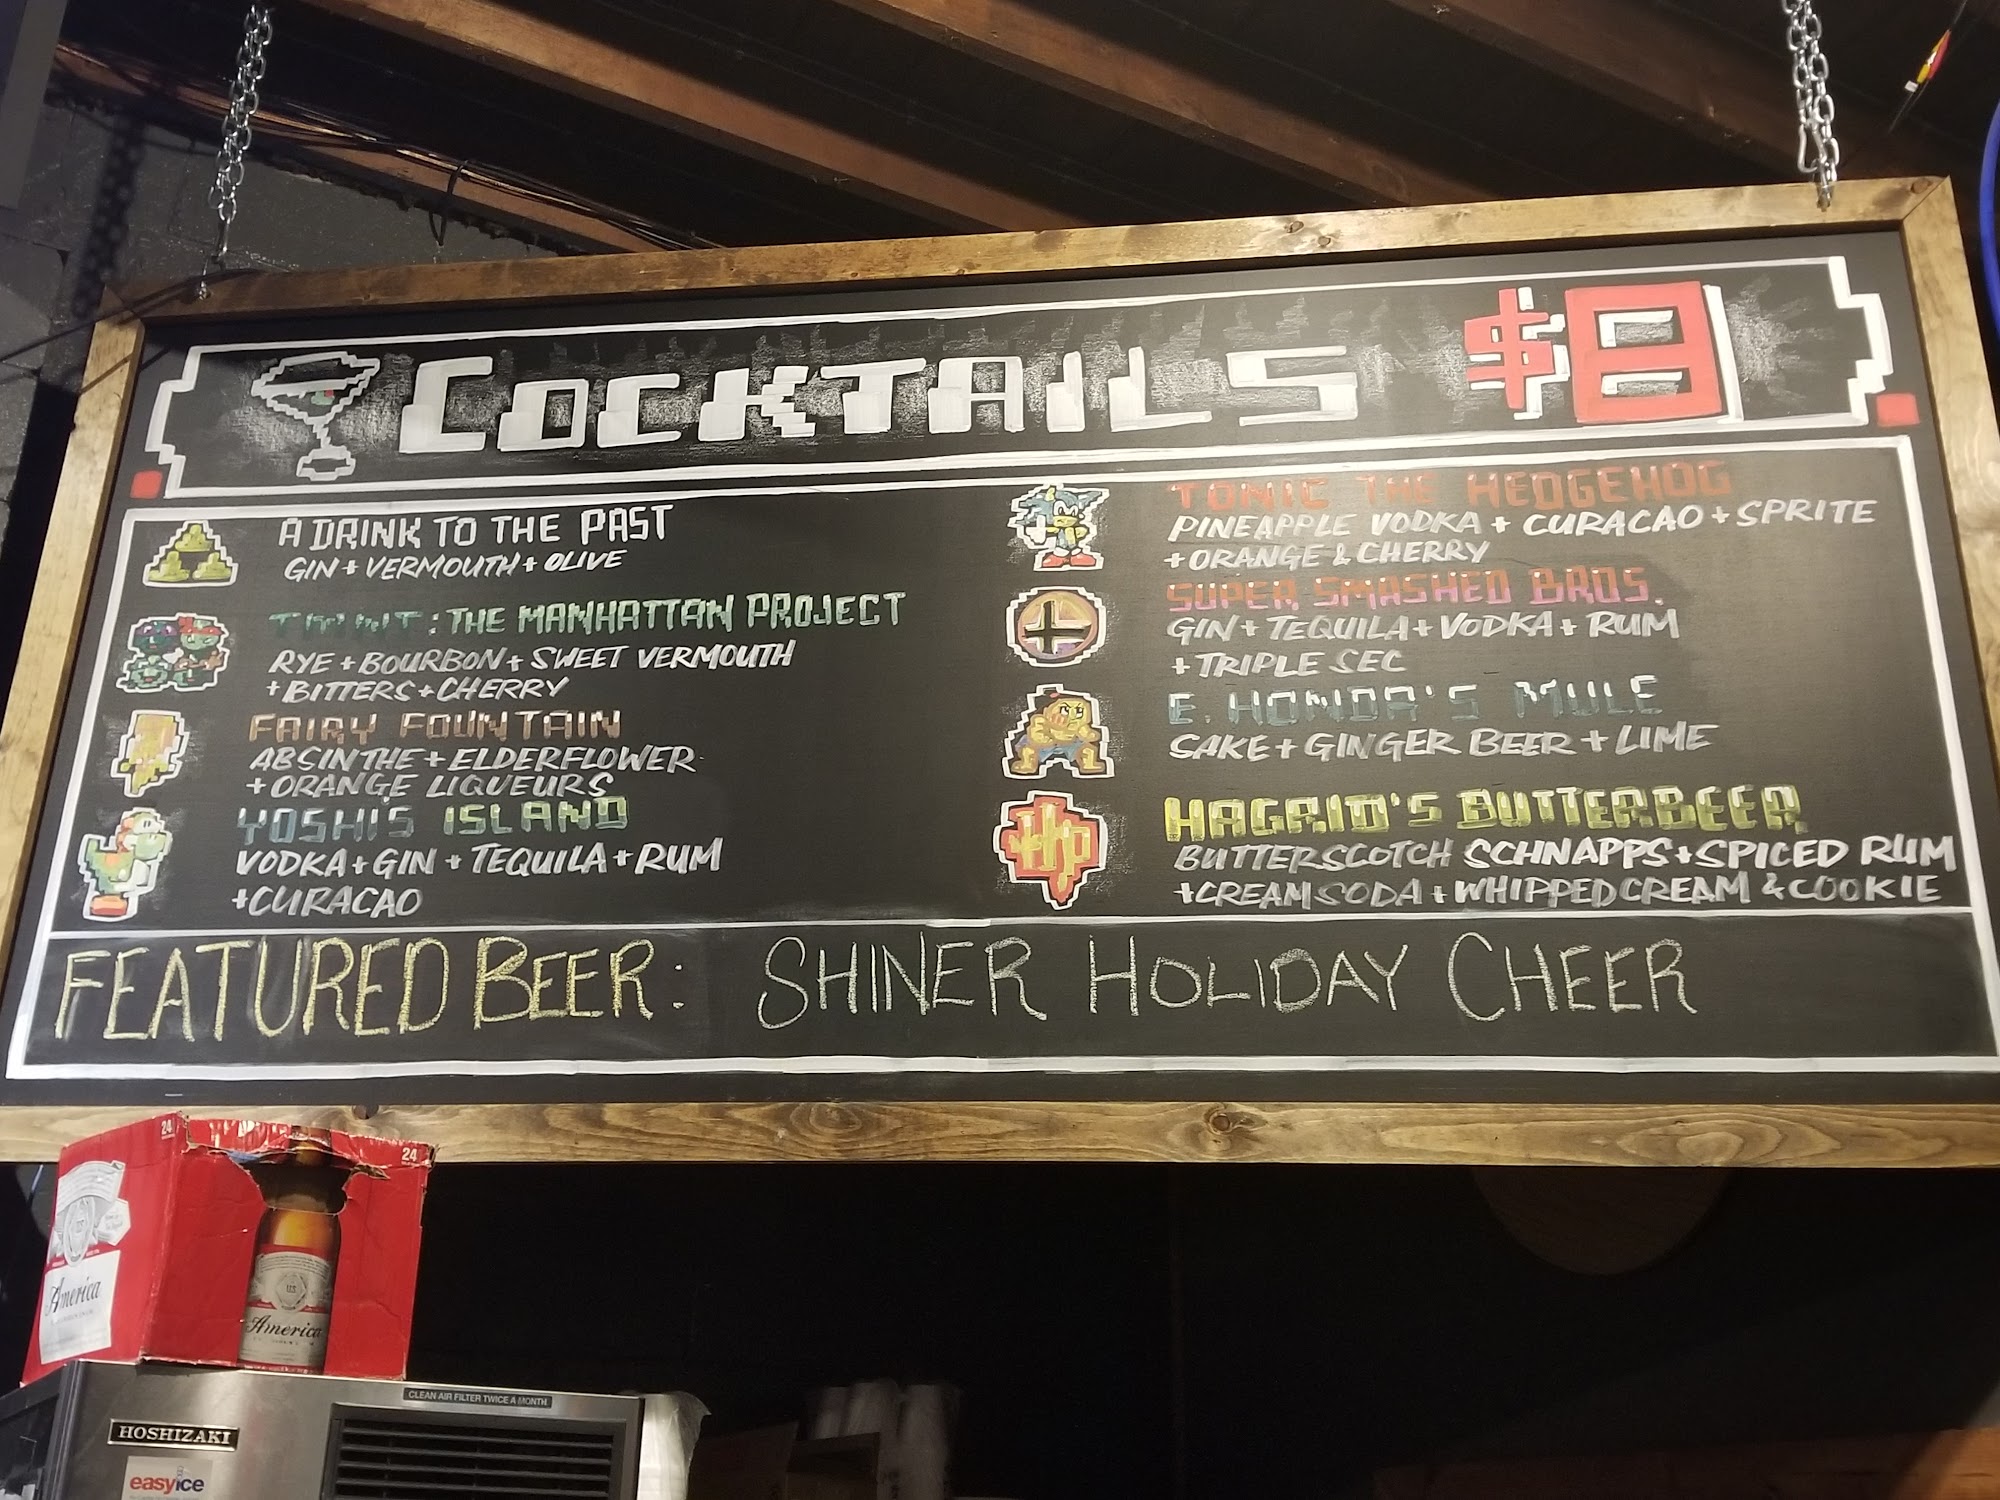 COCKTAILS $8
A DRINK TO THE PAST
GIN + VERMOUTH + OLIVE
TMNT: THE MANHATTAN PROJECT
RYE + BOURBON + SWEET VERMOUTH
+ BITTERS + CHERRY
FAIRY FOUNTAIN
ABSINTHE + ELDERFLOWER
+ ORANGE LIQUEURS
YOSHI'S ISLAND
VODKA + GIN + TEQUILA + RUM
+ CURACAO
TONIC THE HEDGEHOG
PINEAPPLE VODKA + CURACAO + SPRITE
+ ORANGE & CHERRY
SUPER SMASHED BROS.
GIN + TEQUILA + VODKA + RUM
+ TRIPLE SEC
E. HONDA'S MULE
SAKE + GINGER BEER + LIME
HAGRID'S BUTTERBEER
BUTTERSCOTCH SCHNAPPS + SPICED RUM
+ CREAM SODA + WHIPPED CREAM & COOKIE
FEATURED BEER: SHINER HOLIDAY CHEER
24
24
America
America
CLEAN AIR FILTER TWICE A MONTH
HOSHIZAKI
easyice